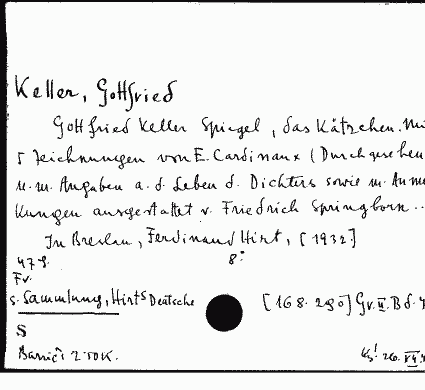 Keller, Gottfried
Gottfried Keller Spiegel, das Kätzchen. Mi
5 Zeichnungen von E. Cardinaux (Durchgesehen
u. m. Angaben a. d. Leben d. Dichters sowie m. Anme
kungen ausgestattet v. Friedrich Springborn...
In Breslau, Ferdinand Hirt, [1932]
47 S. 8°
Fv.
s. Sammlung, Hirts Deutsche [168. 290] Gr. II. B d.
S
2.50K.